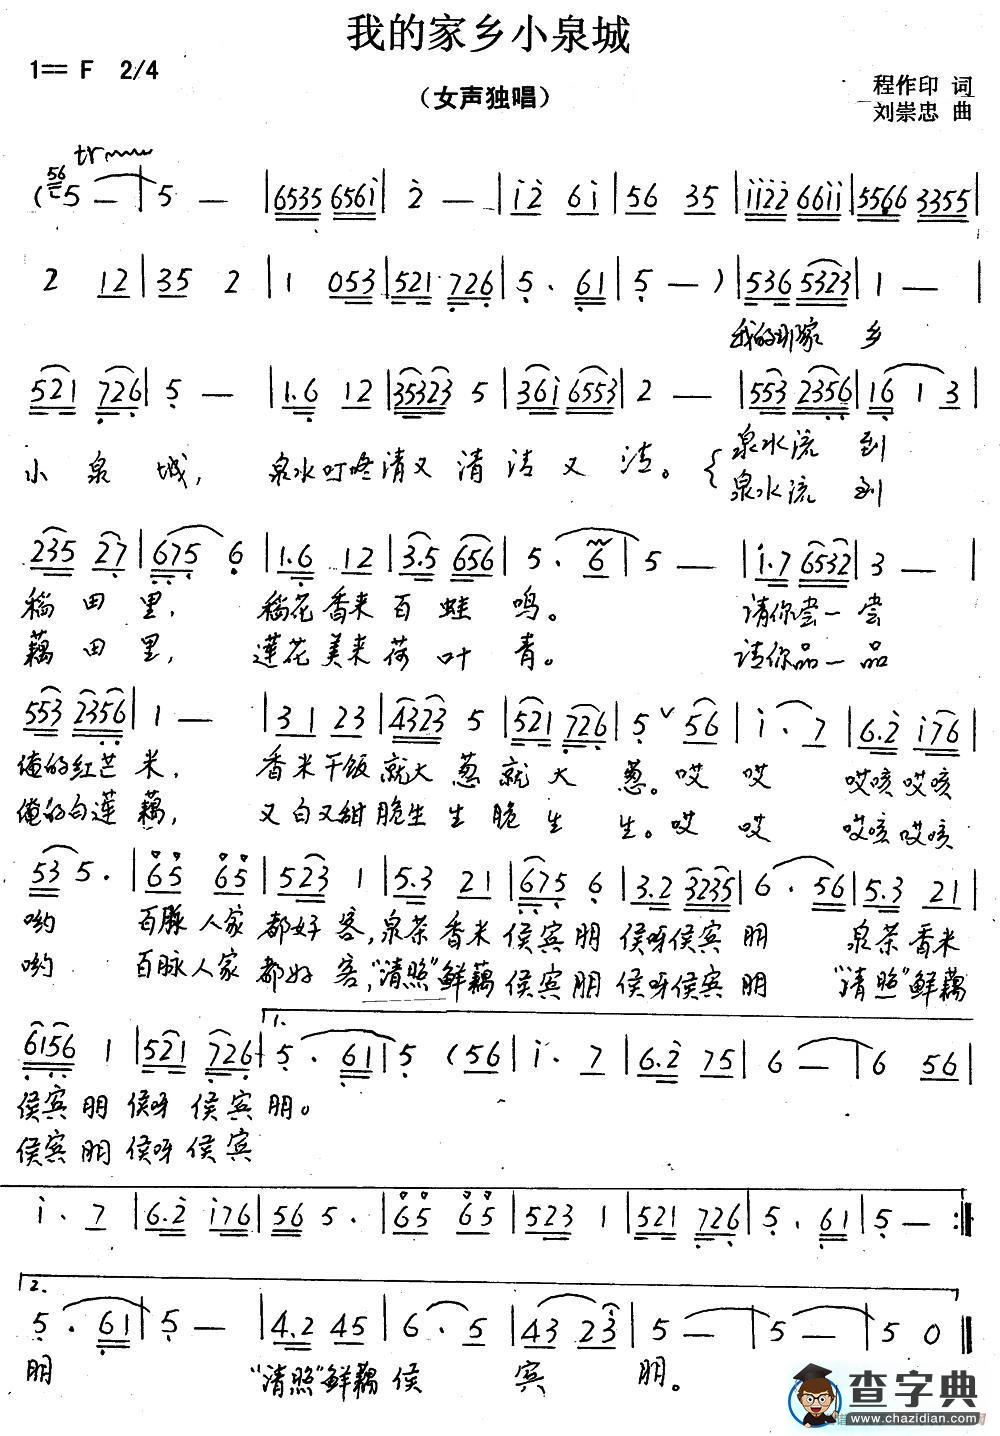 我的家乡小泉城
1== F 2/4
（女声独唱）
程作印 词
刘崇忠 曲
tr
(56 5 — | 5 — | 6535 656i | 2 — | i2 6i | 56 35 | ii22 66ii | 5566 3355 |
2 12 | 35 2 | 1 053 | 521 726 | 5. 61 | 5 — ) | 536 5323 | 1 — |
我的那家 乡
521 726 | 5 — | 1.6 12 | 35323 5 | 36i 6553 | 2 — | 553 2356 | 16 1 3 |
小泉城， 泉水叮咚清又清洁又洁。 { 泉水流到
泉水流到
235 27 | 675 6 | 1.6 12 | 3.5 656 | 5. 6 | 5 — | i.7 6532 | 3 — |
稻田里， 稻花香来百蛙鸣。 请你尝一尝
藕田里， 莲花美来荷叶青。 请你品一品
553 2356 | 1 — | 31 23 | 4323 5 | 521 726 | 5 ∨ 56 | i. 7 | 6.2 i76 |
俺的红芒米， 香米干饭就大葱就大葱。哎 哎 哎咳哎咳
俺的白莲藕， 又白又甜脆生生脆生生。哎 哎 哎咳哎咳
53 5. | 65 65 | 523 1 | 5.3 21 | 675 6 | 3.2 3235 | 6. 56 | 5.3 21 |
哟 百脉人家都好客，泉茶香米候宾朋候呀候宾朋 泉茶香米
哟 百脉人家都好客，“清照”鲜藕候宾朋候呀候宾朋 “清照”鲜藕
1.
6156 1 | 521 726 | 5. 61 | 5 (56 | i. 7 | 6.2 75 | 6 — | 6 56 |
候宾朋候呀候宾朋。
候宾朋候呀候宾
i. 7 | 6.2 i76 | 56 5. | 65 65 | 523 1 | 521 726 | 5. 61 | 5 — :‖
2.
5. 61 | 5 — | 4.2 45 | 6. 5 | 43 23 | 5 — | 5 — | 5 0 ‖
朋 “清照”鲜藕候 宾 朋。
查字典
www.chazidian.com